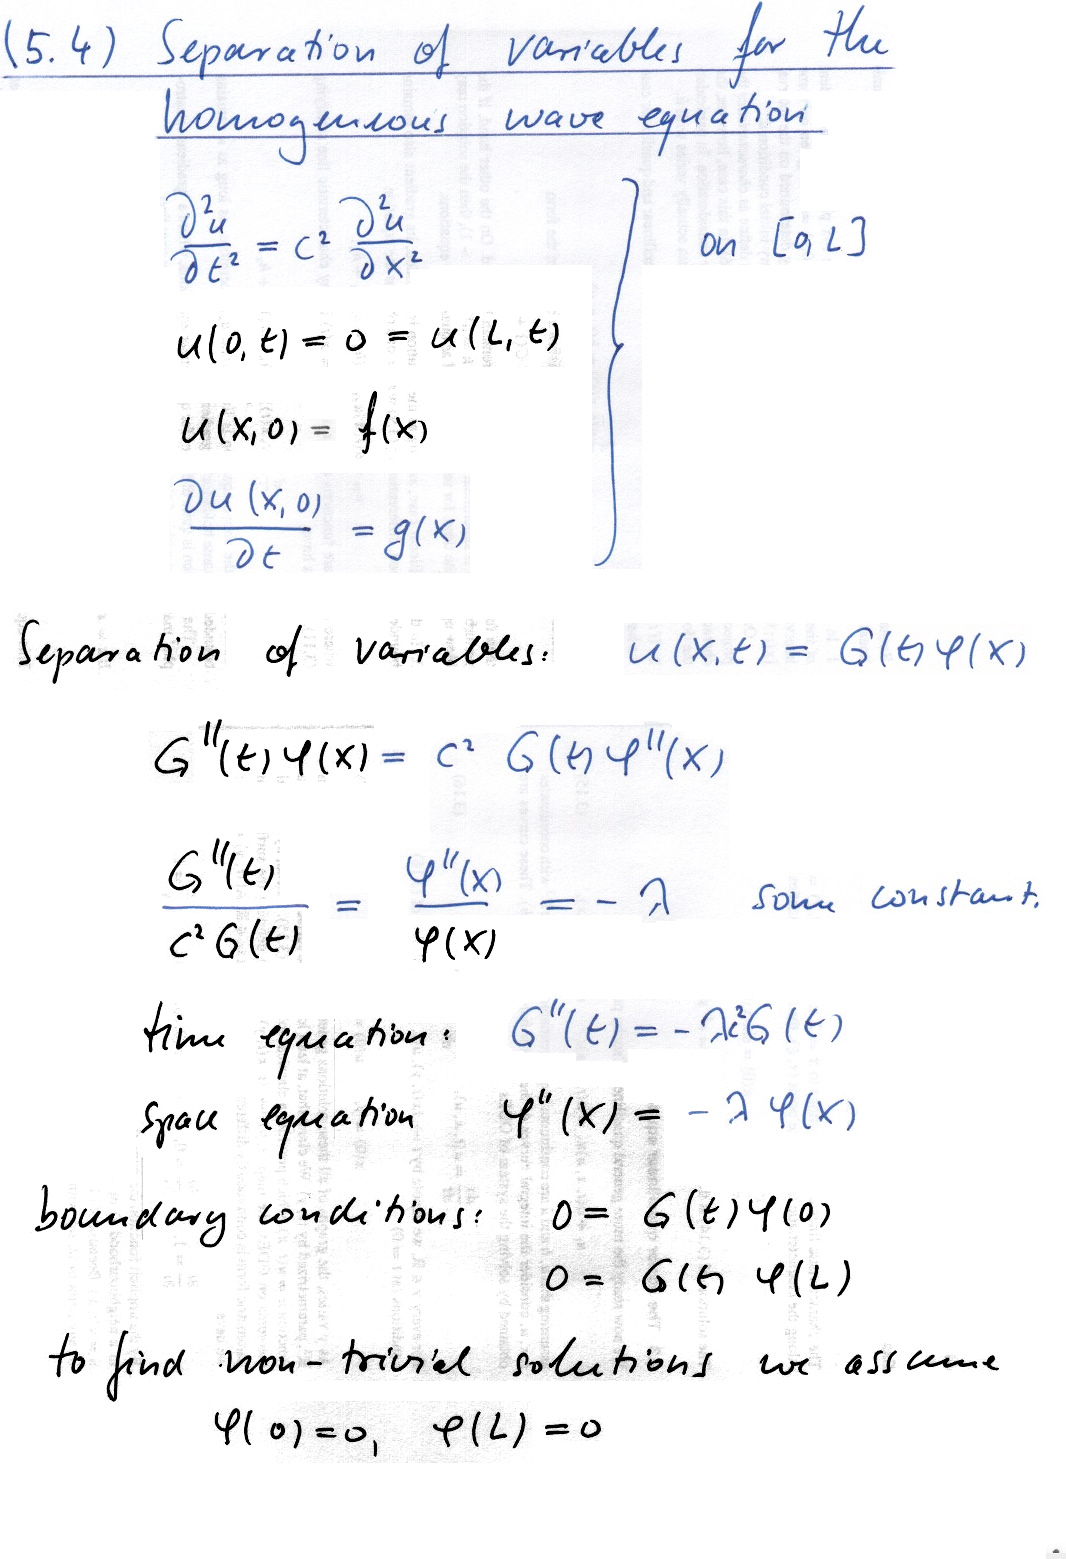 (5.4) Separation of variables for the
homogeneous wave equation
∂²u/∂t² = c² ∂²u/∂x²
on [0, L]
u(0, t) = 0 = u(L, t)
u(x, 0) = f(x)
∂u(x, 0)/∂t = g(x)
Separation of variables: u(x, t) = G(t) φ(x)
G''(t) φ(x) = c² G(t) φ''(x)
G''(t)/c² G(t) = φ''(x)/φ(x) = - λ some constant.
time equation: G''(t) = - λc²G(t)
space equation φ''(x) = - λ φ(x)
boundary conditions: 0 = G(t) φ(0)
0 = G(t) φ(L)
to find non-trivial solutions we assume
φ(0) = 0, φ(L) = 0